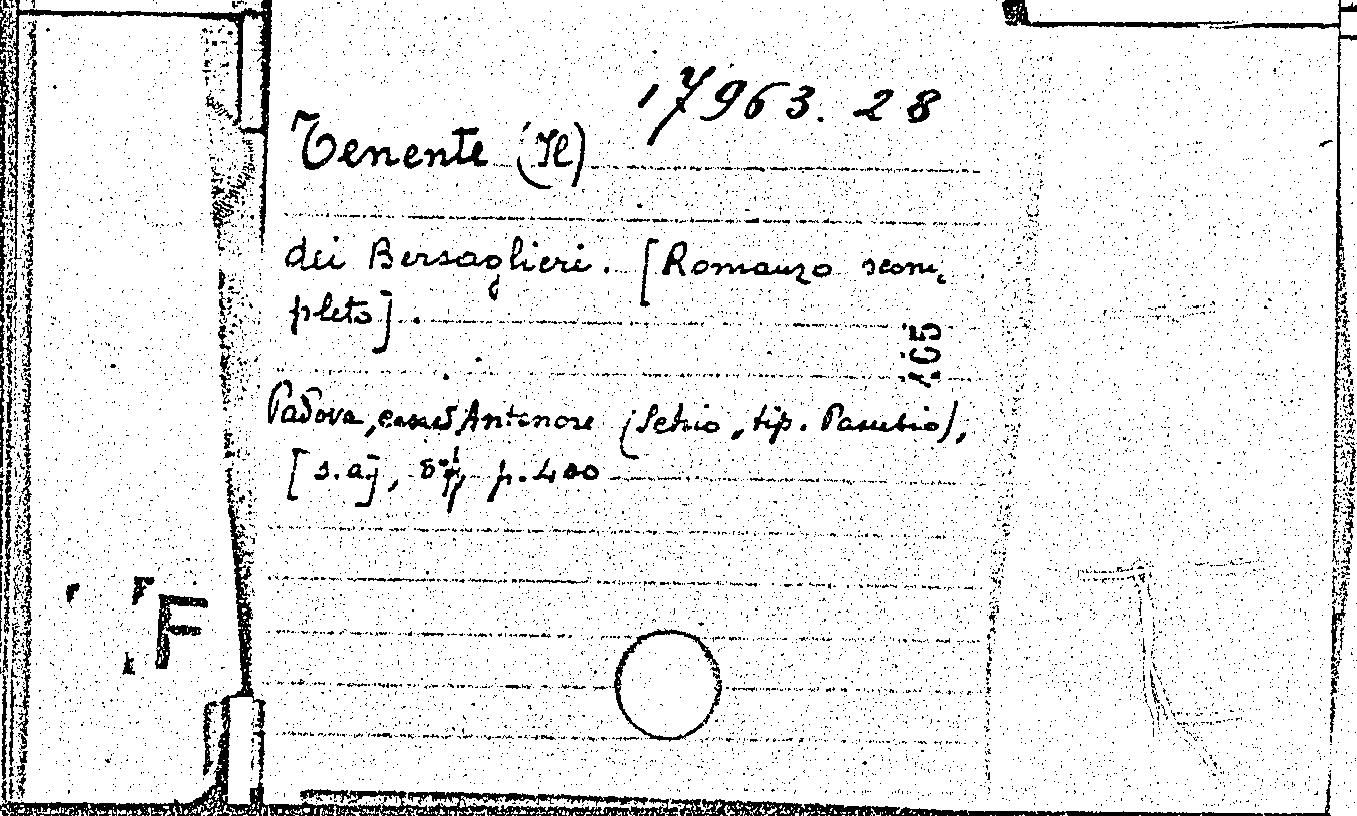 17963.28
Tenente (Il)
dei Bersaglieri. [Romanzo
pleto].
105
Padova, Antenore (Schio, tip. Pasubio),
[s.a], 8°, p. 400
F
F